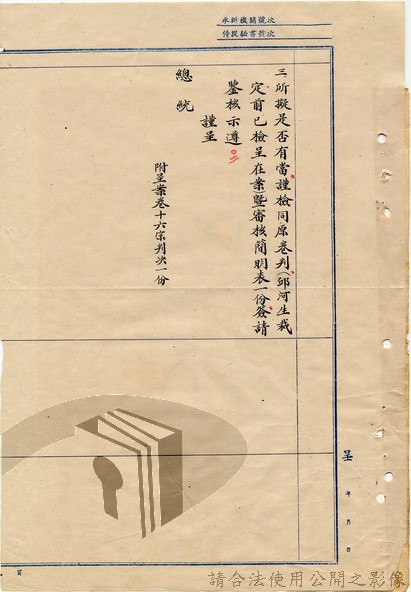 來辦機關號次
侍從祕書簽次
三、所擬是否有當謹檢同原卷判（邱河生裁
定前已檢呈在案）暨審核簡明表一份簽請
鑒核示遵
謹呈
總統
附呈案卷十六宗判決一份
呈
年
月
日
頁
請合法使用公開之影像